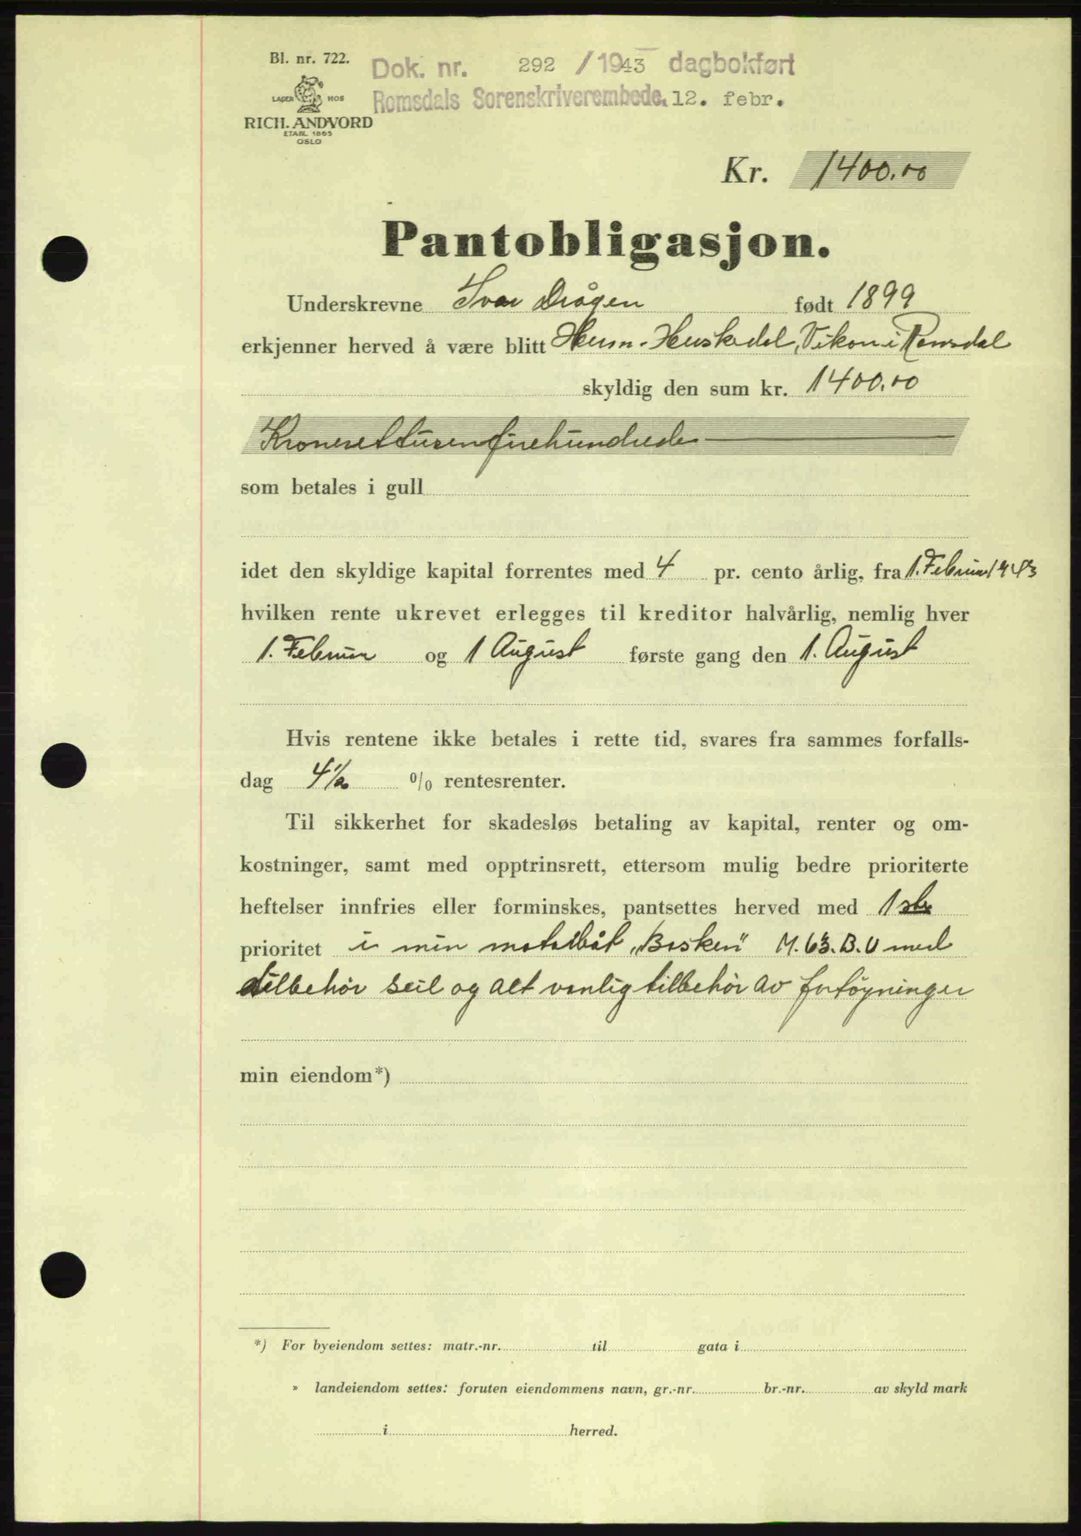 Bl. nr. 722.
LAGER HOS
RICH. ANDVORD
ETABL 1865
OSLO
Dok. nr. 292 / 1943 dagbokført
Romsdals Sorenskriverembede. 12. febr.
Kr. 1400.00
Pantobligasjon.
Underskrevne Ivar Drågen født 1899
erkjenner herved å være blitt Herm. Huskedal, Vikon i Romsdal
skyldig den sum kr. 1400.00
Kronerettusenfirehundrede
som betales i gull
idet den skyldige kapital forrentes med 4 pr. cento årlig, fra 1. Februar 1943
hvilken rente ukrevet erlegges til kreditor halvårlig, nemlig hver
1. Februar og 1 August første gang den 1. August
Hvis rentene ikke betales i rette tid, svares fra sammes forfalls-
dag 4½ % rentesrenter.
Til sikkerhet for skadesløs betaling av kapital, renter og om-
kostninger, samt med opptrinsrett, ettersom mulig bedre prioriterte
heftelser innfries eller forminskes, pantsettes herved med 1ste
prioritet i min motorbåt "Basken" M. 63. B. U med
tilbehør seil og alt vanlig tilbehør av fortøyninger
min eiendom*)
*) For byeiendom settes: matr.-nr. til gata i
» landeiendom settes: foruten eiendommens navn, gr.-nr. br.-nr. av skyld mark
i herred.